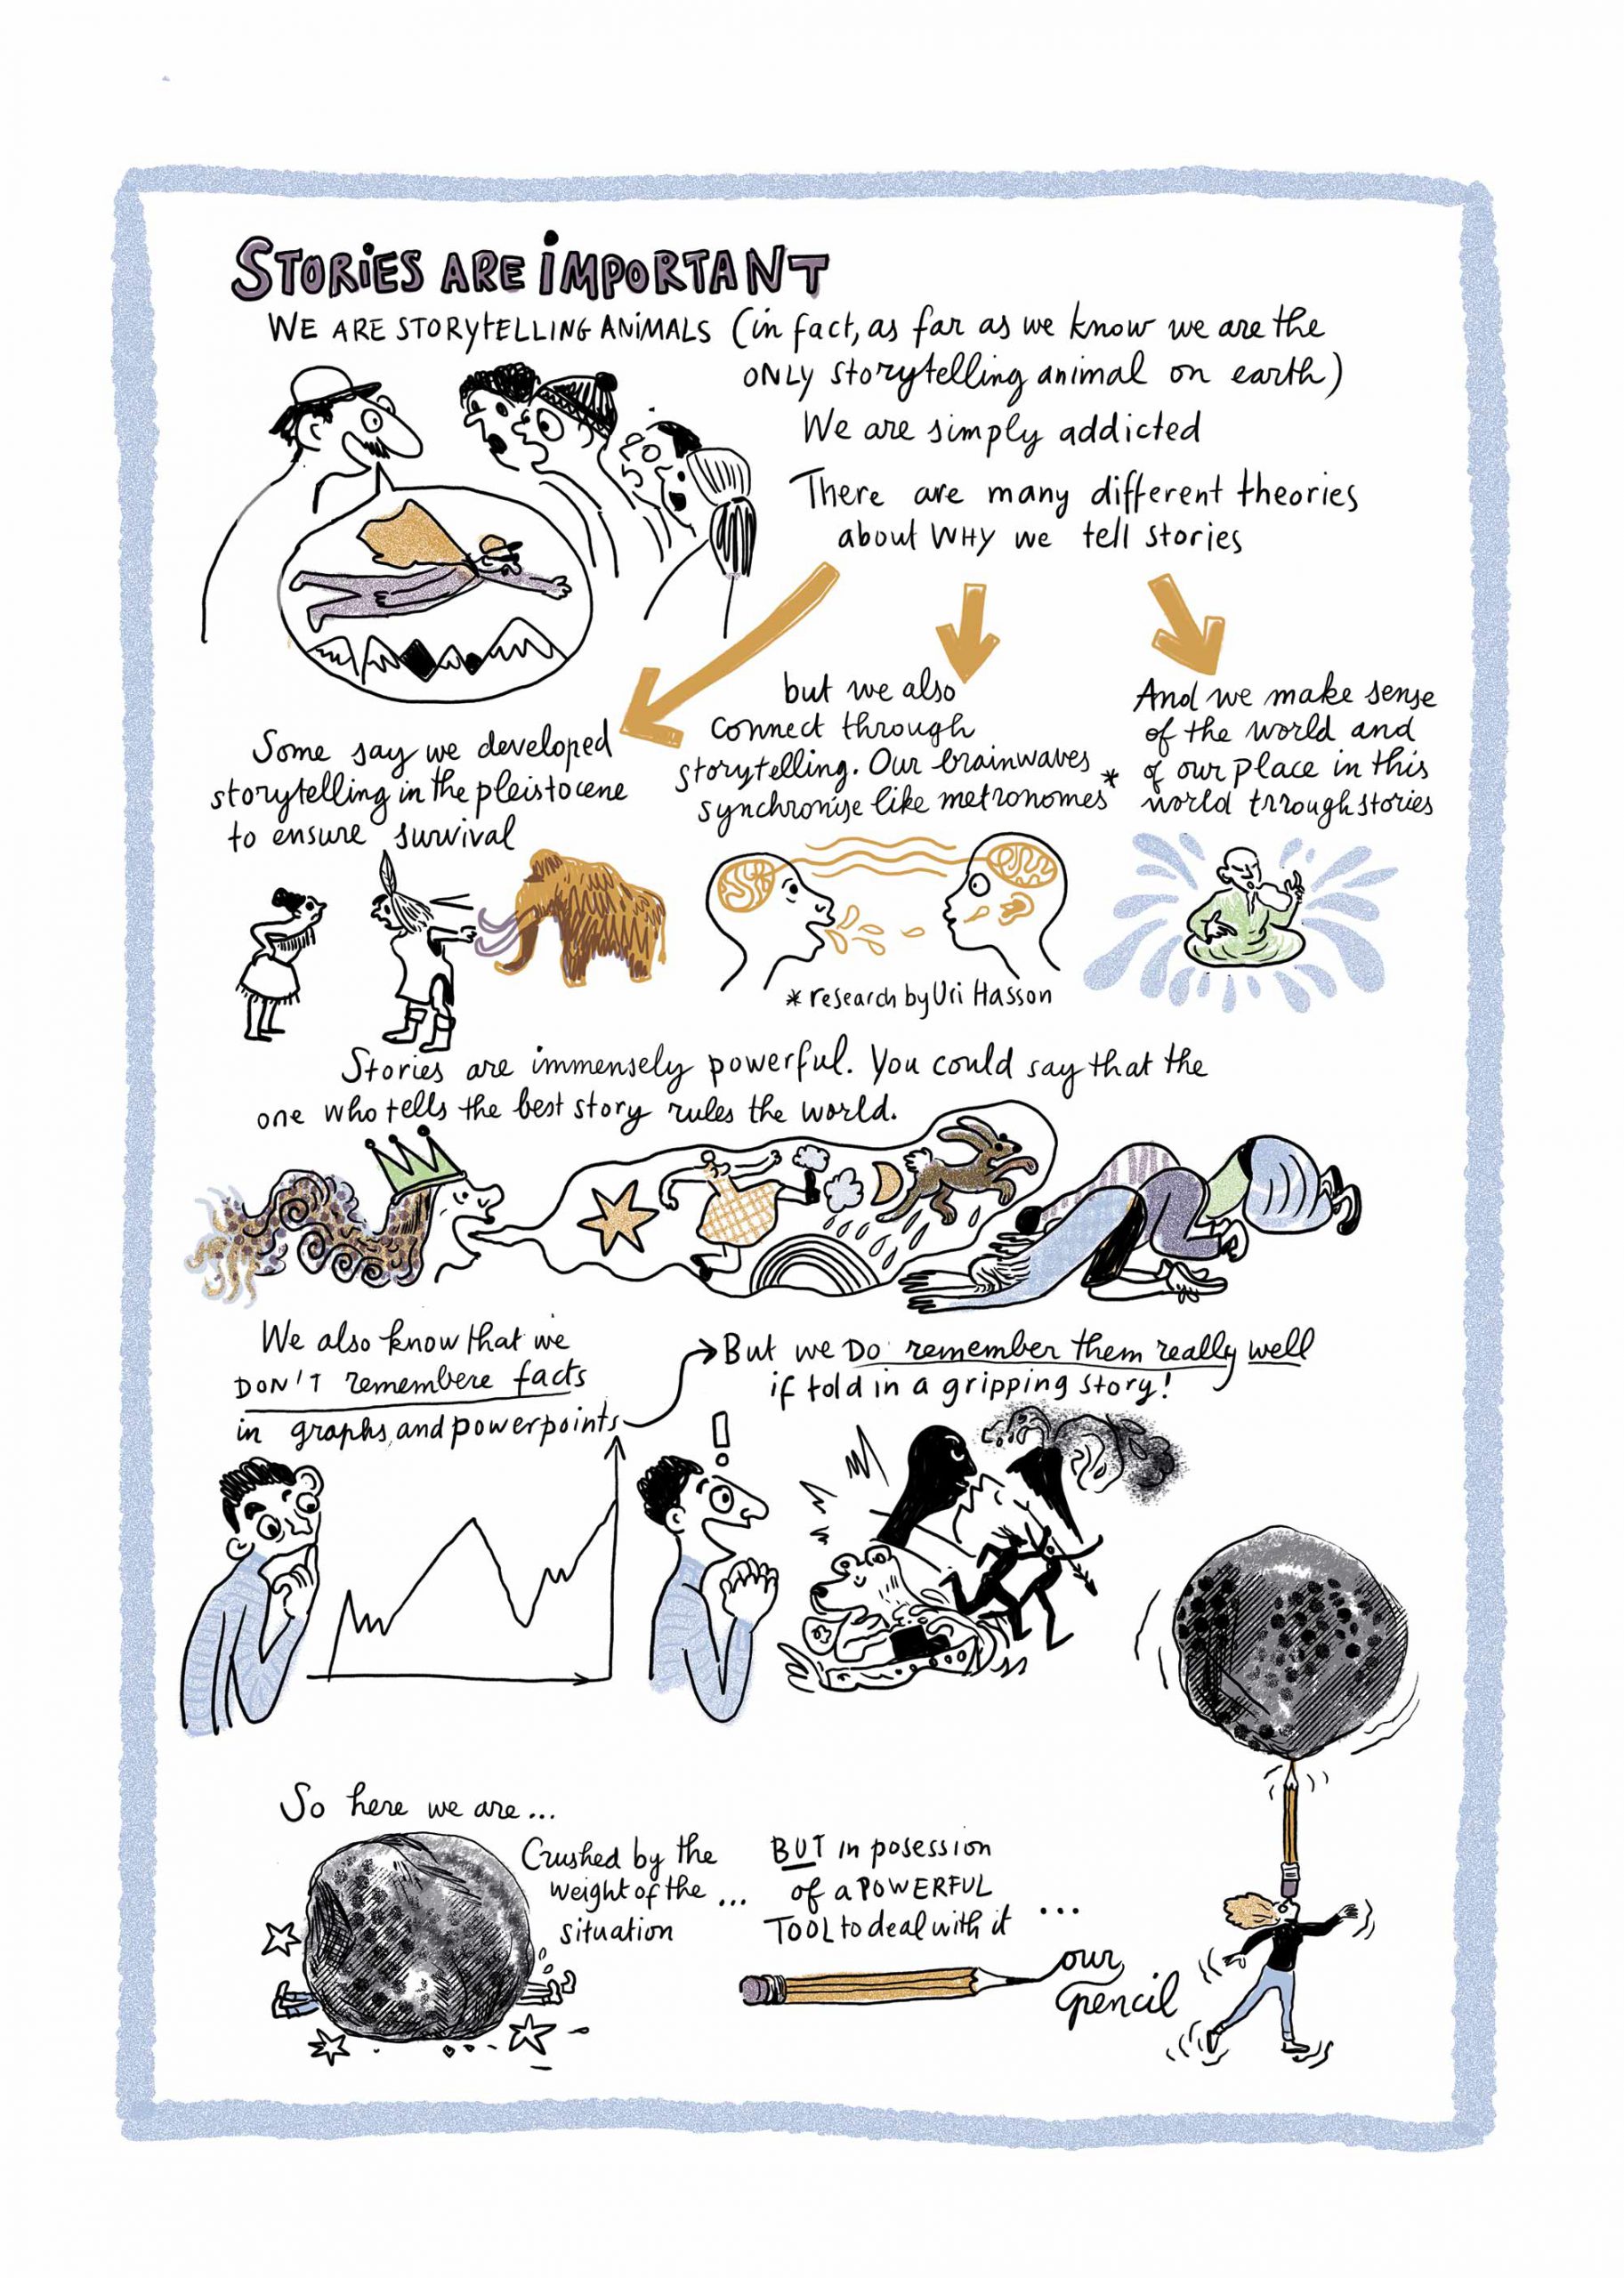 STORIES ARE IMPORTANT
WE ARE STORYTELLING ANIMALS (in fact, as far as we know we are the
ONLY storytelling animal on earth)
We are simply addicted
There are many different theories
about WHY we tell stories
Some say we developed
storytelling in the pleistocene
to ensure survival
but we also
connect through
storytelling. Our brainwaves
synchronise like metronomes*
* research by Uri Hasson
And we make sense
of the world and
of our place in this
world trrough stories
Stories are immensely powerful. You could say that the
one who tells the best story rules the world.
We also know that we
DON'T remembere facts
in graphs, and powerpoints
But we DO remember them really well
if told in a gripping story!
!
So here we are...
Crushed by the
weight of the ...
situation
BUT in posession
of a POWERFUL
TOOL to deal with it ...
our
pencil